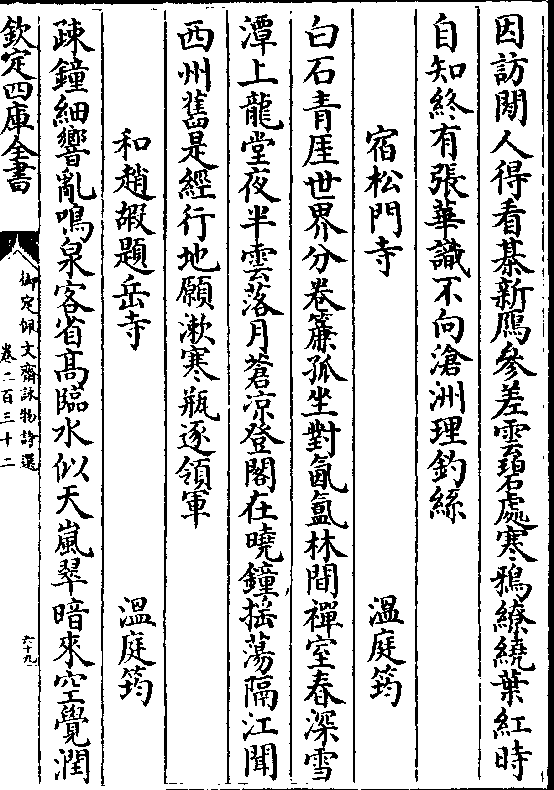 因訪閒人得看碁新鴈參差雲碧處寒鴉繚繞葉紅時
自知終有張華識不向滄洲理釣絲
宿松門寺 溫庭筠
白石青厓世界分卷簾孤坐對氤氳林間禪室春深雪
潭上龍堂夜半雲落月蒼凉登閣在曉鐘揺蕩隔江聞
西州舊是經行地願漱寒瓶逐領軍
和趙嘏題岳寺 溫庭筠
疎鐘細響亂鳴泉客省髙臨水似天嵐翠暗來空覺潤
欽定四庫全書
御定佩文齋詠物詩選
卷二百三十二
六十九